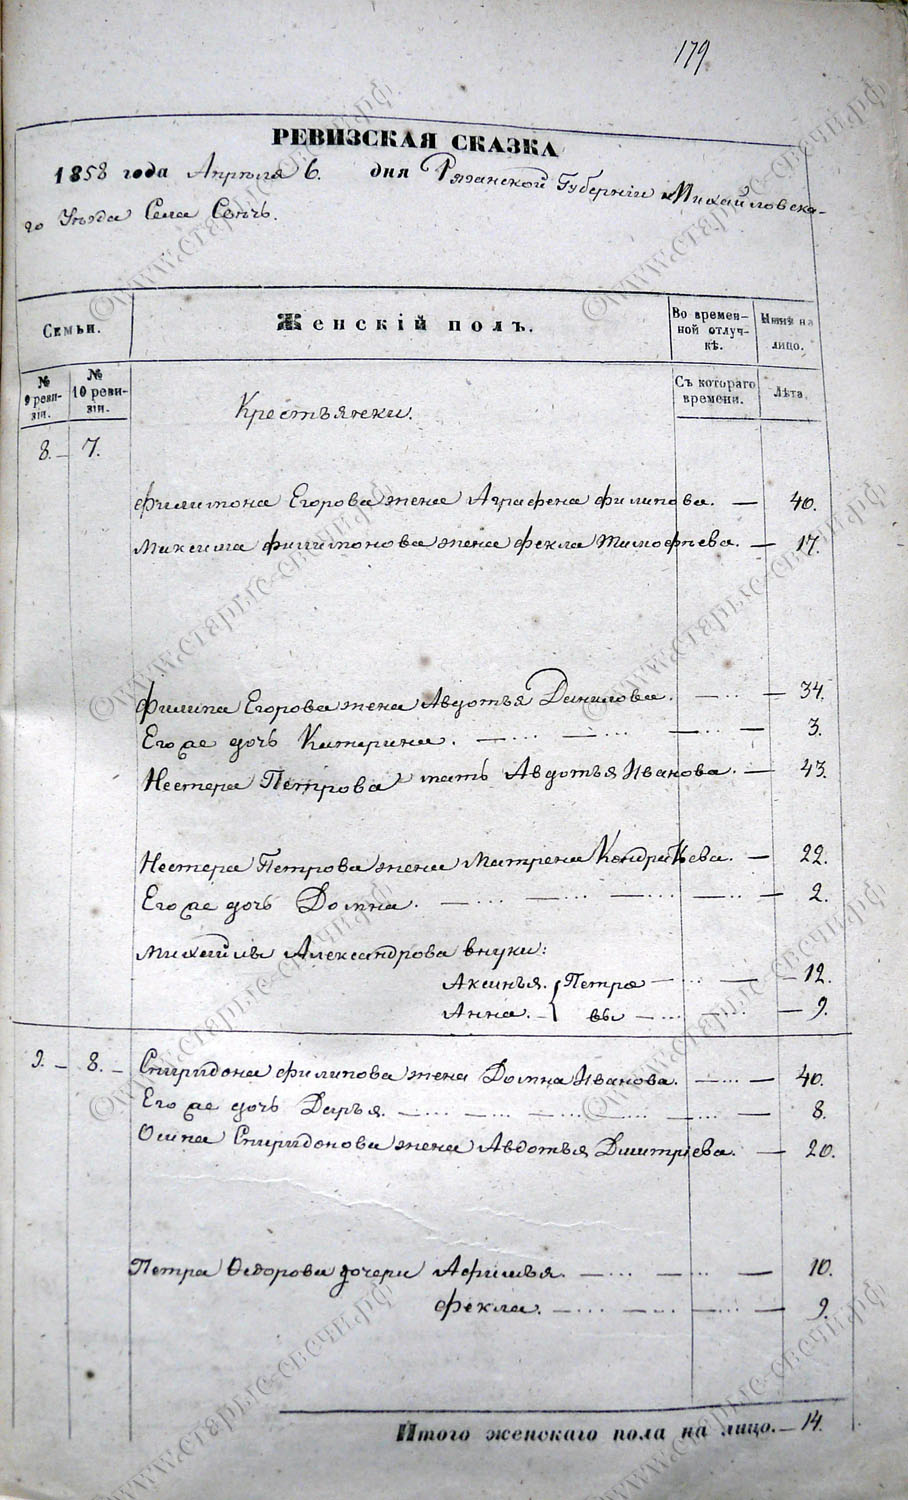 179
РЕВИЗСКАЯ СКАЗКА
1858 года Апреля 6. дня Рязанской Губерніи Михайловска-
го Уезда Села
Семьи.
Женскій полъ.
Во времен-
ной отлуч-
кѣ.
Нынѣ на
лицо.
№
9 реви-
зіи.
№
10 реви-
зіи.
Съ котораго
времени.
Лѣта
Крестьянки.
8. – 7.
Филимона Егорова жена Аграфена Филипова. — 40.
Максима Филимонова жена Фекла Тимофѣева. — 17.
Филипа Егорова жена Авдотья Данилова. — 34.
Его же дочь Катерина. — 3.
Нестера Петрова мать Авдотья Иванова. — 43.
Нестера Петрова жена Матрена Кондратьева. — 22.
Его же дочь Домна. — 2.
Михайлы Александрова внуки:
Аксинья. { Петро — 12.
Анна. { вы — 9.
9. – 8. – Спиридона Филипова жена Домна Иванова. — 40.
Его же дочь Дарья. — 8.
Осипа Спиридонова жена Авдотья Дмитріева. — 20.
Петра Ѳедорова дочери Афимья — 10.
Фекла. — 9.
Итого женскаго пола на лицо. — 14.
©www.старые-свечи.рф